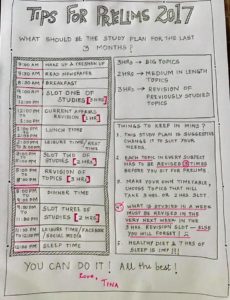 TIPS FOR PRELIMS 2017
WHAT SHOULD BE THE STUDY PLAN FOR THE LAST
3 MONTHS?
WAKE UP & FRESHEN UP
READ NEWSPAPER
BREAKFAST
SLOT ONE OF
STUDIES [3 HRS]
CURRENT AFFAIRS
REVISION [1 HR]
LUNCH TIME
LEISURE TIME/
REST TIME
SLOT TWO OF
STUDIES [2 HRS]
REVISION OF
TOPICS [3 HRS]
DINNER TIME
SLOT THREE OF
STUDIES [2 HRS]
LEISURE TIME/FACEBOOK
/SOCIAL MEDIA
SLEEP TIME
3HRS → BIG TOPICS
2HRS → MEDIUM IN LENGTH
TOPICS
3HRS → REVISION OF
PREVIOUSLY STUDIED
TOPICS
THINGS TO KEEP IN MIND?
1. THIS STUDY PLAN IS SUGGESTIVE
CHANGE IT TO SUIT YOUR
NEEDS.
2. EACH TOPIC IN EVERY SUBJECT
HAS TO BE REVISED TIMES
BEFORE YOU SIT FOR PRELIMS
3. MAKE YOUR OWN TIMETABLE,
CHOOSE TOPICS THAT WILL
TAKE 3 HRS OR 2 HRS SLOT.
4. WHAT IS STUDIED IN A WEEK
MUST BE REVISED IN THE
VERY NEXT WEEK IN THE
3 HRS. REVISION SLOT - ELSE
YOU WILL FORGET!
5. HEALTHY DIET & 7 HRS OF
SLEEP IS IMP!!!
YOU CAN DO IT! All the best!
Love,
Tina